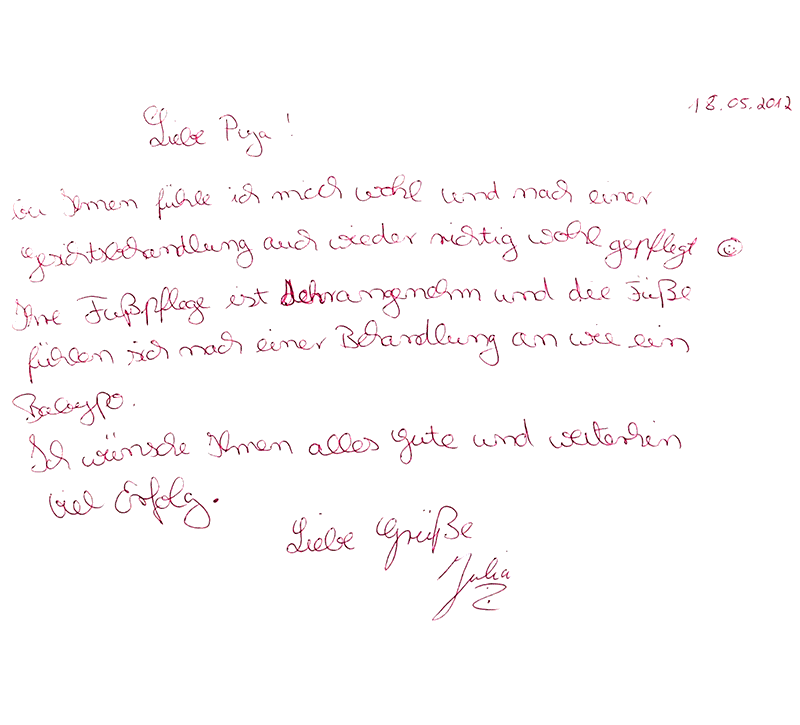 18.05.2012
Liebe Piya!
bei Ihnen fühle ich mich wohl und nach einer
Gesichtsbehandlung auch wieder richtig wohl gepflegt ☺
Ihre Fußpflege ist sehr angenehm und die Füße
fühlen sich nach einer Behandlung an wie ein
Babypo.
Ich wünsche Ihnen alles Gute und weiterhin
viel Erfolg.
Liebe Grüße
Julia